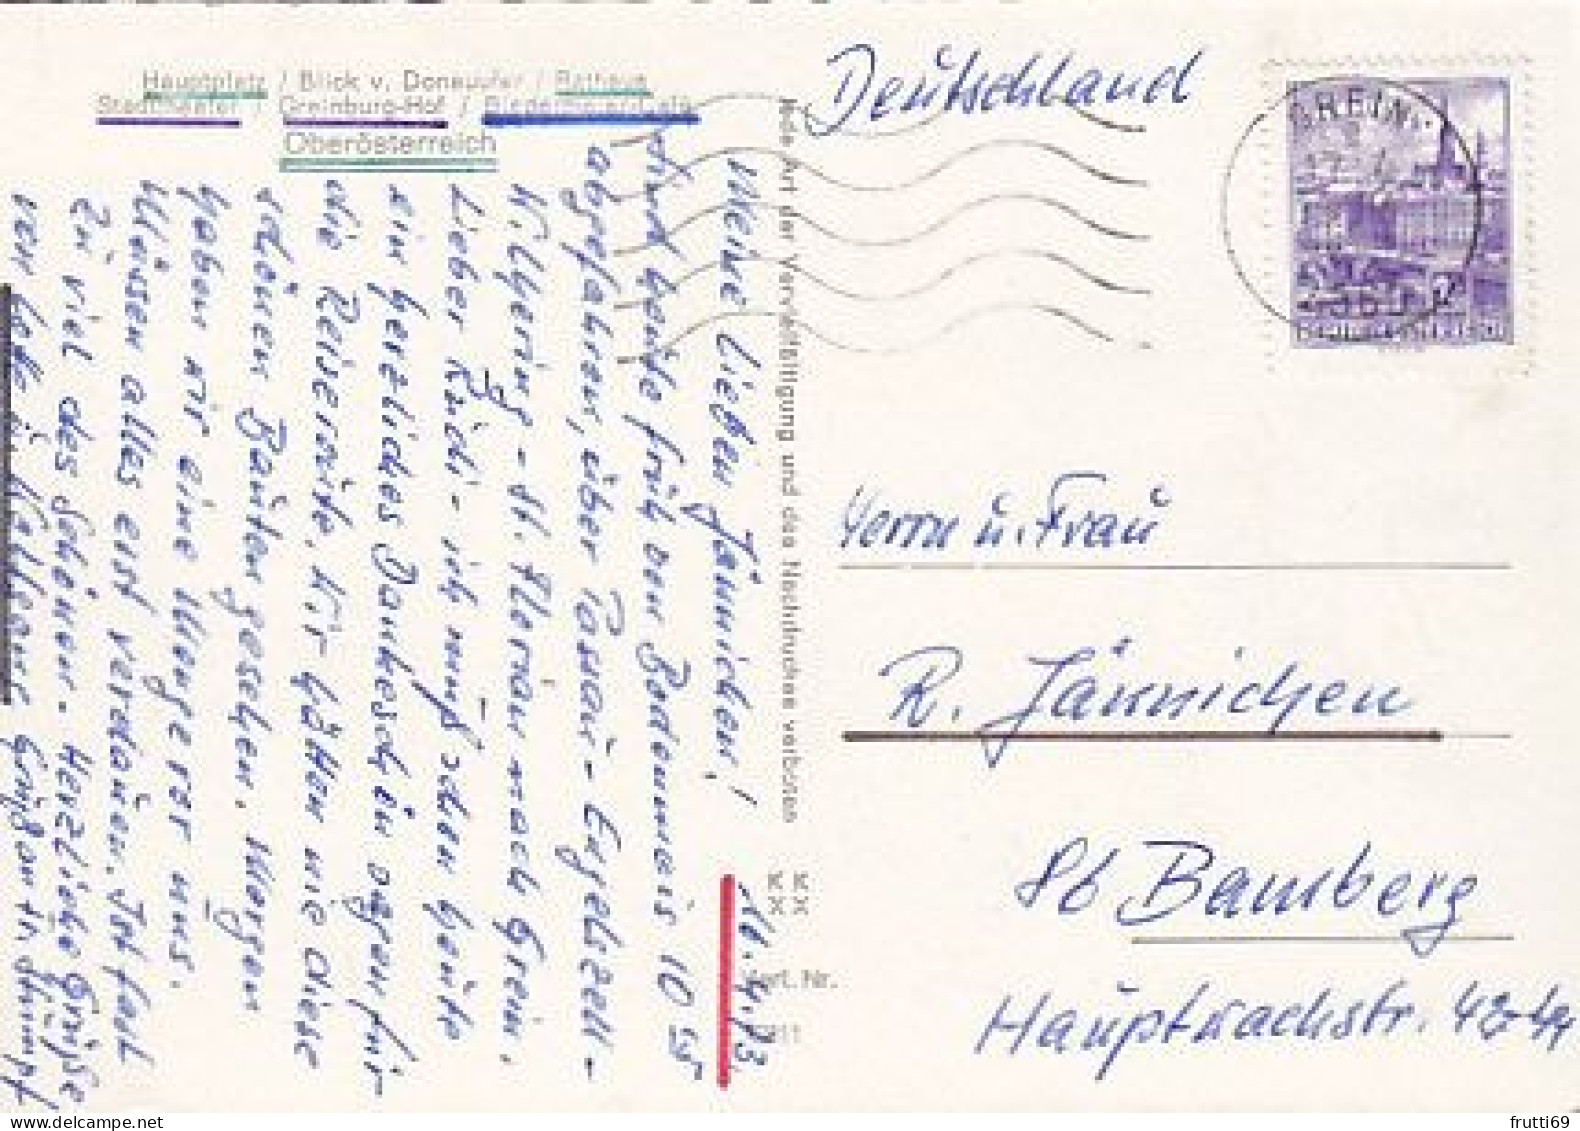 Hauptplatz / Blick v. Donauufer / Rathaus
Stadttheater / Greinburg-Hof /
Oberösterreich
Deutschland
GREIN
Jede Art der Vervielfältigung und des Nachdruckes verboten
XX
XX
Verl. Nr.
11
16.4.73.
Meine Lieben Jännichen!
Sind heute früh von Bodenmais 10 Uhr
abgefahren, über Passau - Engelszell -
Wilhering - St. Florian nach Grein.
Lieber Rudi - ich muß schon heute
ein herzliches Dankeschön sagen für
die Reiseroute. Wir hätten nie diese
schönen Bauten gesehen. Morgen
haben wir eine Menge vor uns.
Müssen alles erst verdauen. Ist fast
zu viel des Schönen. Herzliche Grüße
von
Herrn u. Frau
R. Jännichen
86 Bamberg
Hauptwachstr.
frutti69